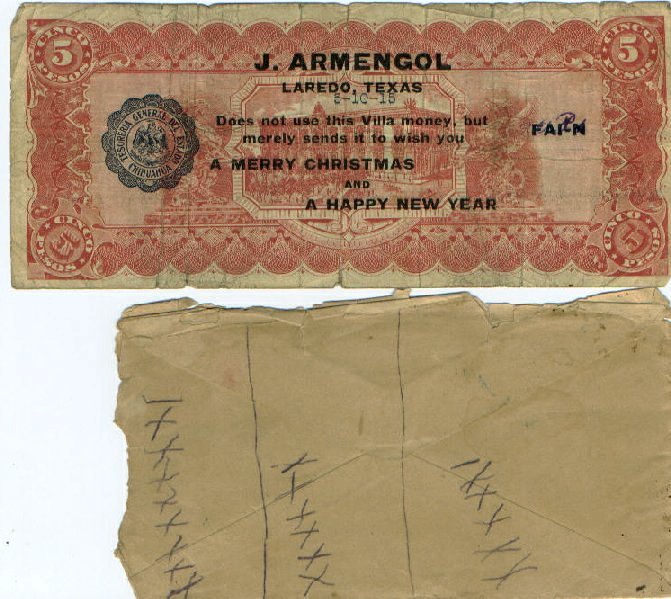 CINCO 5 PESOS
CINCO 5 PESOS
J. ARMENGOL
LAREDO, TEXAS
Does not use this Villa money, but
merely sends it to wish you
A MERRY CHRISTMAS
AND
A HAPPY NEW YEAR
TESORERIA GENERAL DEL ESTADO
CHIHUAHUA
CINCO 5 PESOS
CINCO 5 PESOS